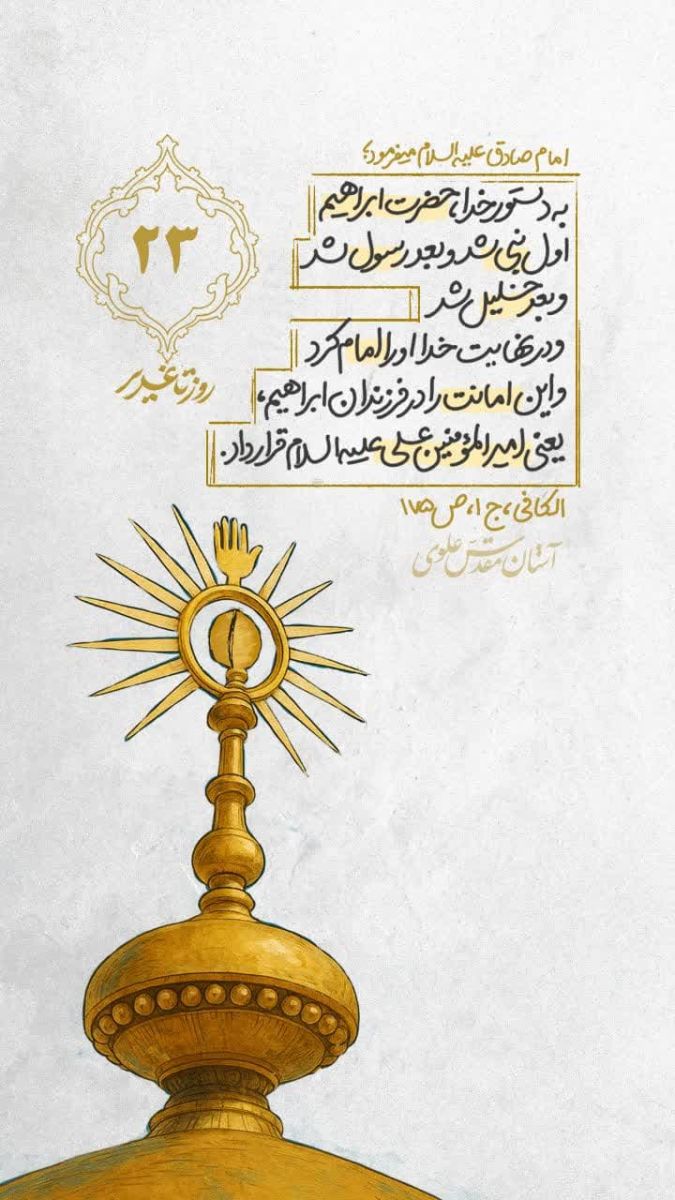 امام صادق علیه السلام میفرمود؛
به دستور خدا، حضرت ابراهیم
اول نبی شد و بعد رسول شد
و بعد خلیل شد
و در نهایت خدا او را امام کرد
و این امانت را در فرزندان ابراهیم،
یعنی امیرالمؤمنین علی علیه السلام قرار داد.
الکافی، ج ۱، ص ۱۷۵
آستان مقدس علوی
۲۳
روز تا غدیر